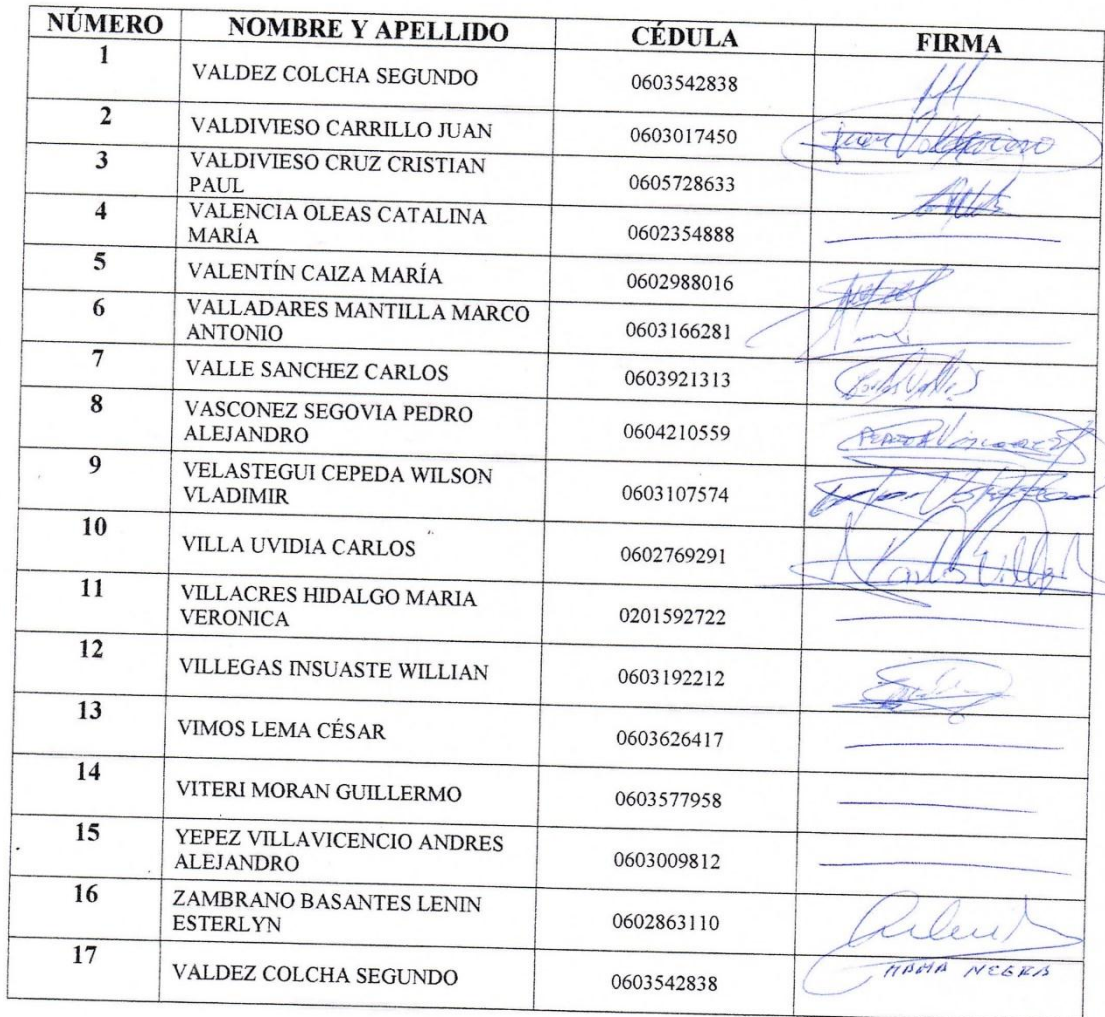 NÚMERO NOMBRE Y APELLIDO CÉDULA FIRMA
1 VALDEZ COLCHA SEGUNDO 0603542838
2 VALDIVIESO CARRILLO JUAN 0603017450 Juan Valdivieso
3 VALDIVIESO CRUZ CRISTIAN
PAUL 0605728633
4 VALENCIA OLEAS CATALINA
MARÍA 0602354888
5 VALENTÍN CAIZA MARÍA 0602988016
6 VALLADARES MANTILLA MARCO
ANTONIO 0603166281
7 VALLE SANCHEZ CARLOS 0603921313 Carlos Valle S
8 VASCONEZ SEGOVIA PEDRO
ALEJANDRO 0604210559
9 VELASTEGUI CEPEDA WILSON
VLADIMIR 0603107574
10 VILLA UVIDIA CARLOS 0602769291 Carlos Villa
11 VILLACRES HIDALGO MARIA
VERONICA 0201592722
12 VILLEGAS INSUASTE WILLIAN 0603192212
13 VIMOS LEMA CÉSAR 0603626417
14 VITERI MORAN GUILLERMO 0603577958
15 YEPEZ VILLAVICENCIO ANDRES
ALEJANDRO 0603009812
16 ZAMBRANO BASANTES LENIN
ESTERLYN 0602863110
17 VALDEZ COLCHA SEGUNDO 0603542838 MAMA NEGRA